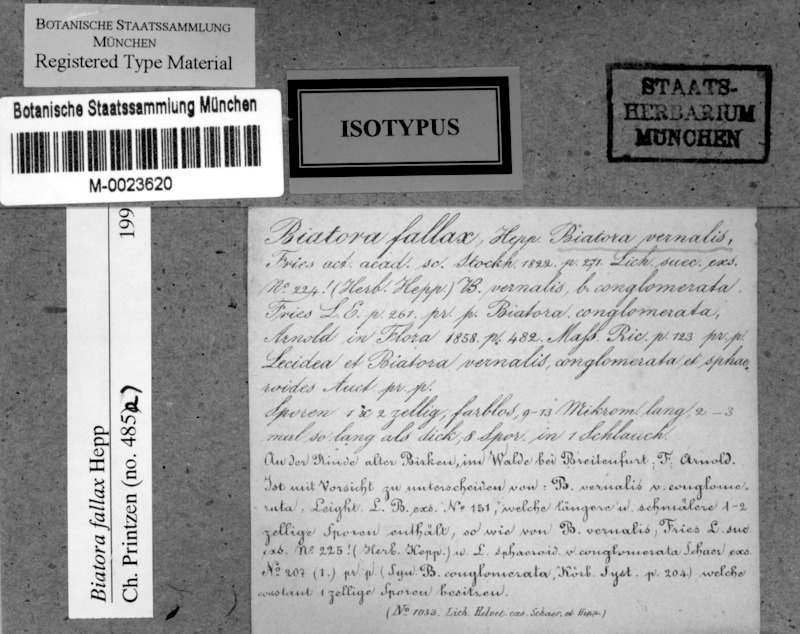 BOTANISCHE STAATSSAMMLUNG
MÜNCHEN
Registered Type Material
Botanische Staatssammlung München
M-0023620
ISOTYPUS
STAATS-
HERBARIUM
MÜNCHEN
Biatora fallax Hepp
Ch. Printzen (no. 485a)
199
Biatora fallax, Hepp. Biatora vernalis,
Fries act. acad. sc. Stockh. 1822. p. 271. Lich. suec. exs.
No 224! (Herb. Hepp.) B. vernalis, b. conglomerata.
Fries L. E. p. 261. pr. p. Biatora conglomerata,
Arnold in Flora 1858. p. 482. Mass. Ric. p. 123 pr. p.
Lecidea et Biatora vernalis, conglomerata, et sphae-
roides Auct. pr. p.
Sporen 1 & 2 zellig, farblos, 9-13 Mikrom. lang, 2-3
mal so lang als dick, 8 Spor. in 1 Schlauch.
An der Rinde alter Birken, im Walde bei Breitenfurt, F. Arnold.
Ist mit Vorsicht zu unterscheiden von: B. vernalis v. conglome-
rata, Leight. L. B. exs. No 151, welche längere u. schmälere 1-2
zellige Sporen enthält, so wie von B. vernalis, Fries L. suc.
exs. No 225! (Herb. Hepp.) u. L. sphaeroid. v. conglomerata Schaer exs.
No 207 (1.) pr. p. (Syn. B. conglomerata, Körb. Syst. p. 204) welche
constant 1 zellige Sporen besitzen.
(No 1033. Lich. Helvet. exs. Schaer. et Hepp.)